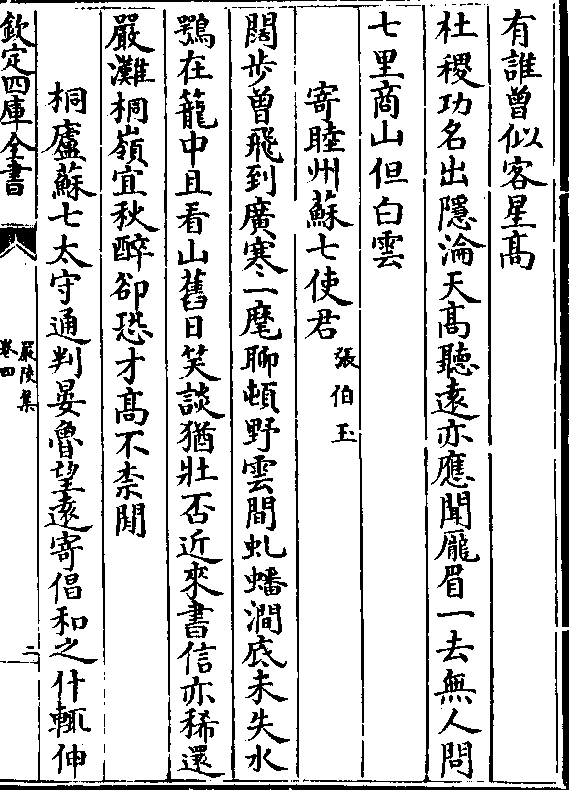 有誰曾似客星髙
杜稷功名出隱淪天髙聽遠亦應聞厖眉一去無人問
七里商山但白雲
寄睦州蘇七使君張伯玉
闊歩曾飛到廣寒一麾聊頓野雲間虬蟠澗底未失水
鶚在籠中且看山舊日笑談猶壯否近來書信亦稀還
嚴灘桐嶺宜秋醉卻恐才髙不柰閒
桐廬蘇七太守通判晏魯望逺寄倡和之什輒伸
欽定四庫全書
嚴陵集
卷四
二